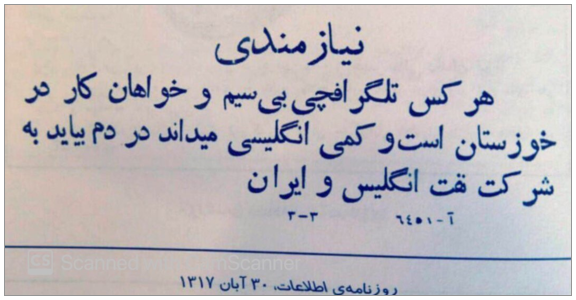 نیازمندی
هر کس تلگرافچی بی‌سیم و خواهان کار در
خوزستان است و کمی انگلیسی میداند در دم بیاید به
شرکت نفت انگلیس و ایران
آ-٦٤٥١ ۳-۳
CS Scanned with CamScanner
روزنامه‌ی اطلاعات، ۳۰ آبان ۱۳۱۷